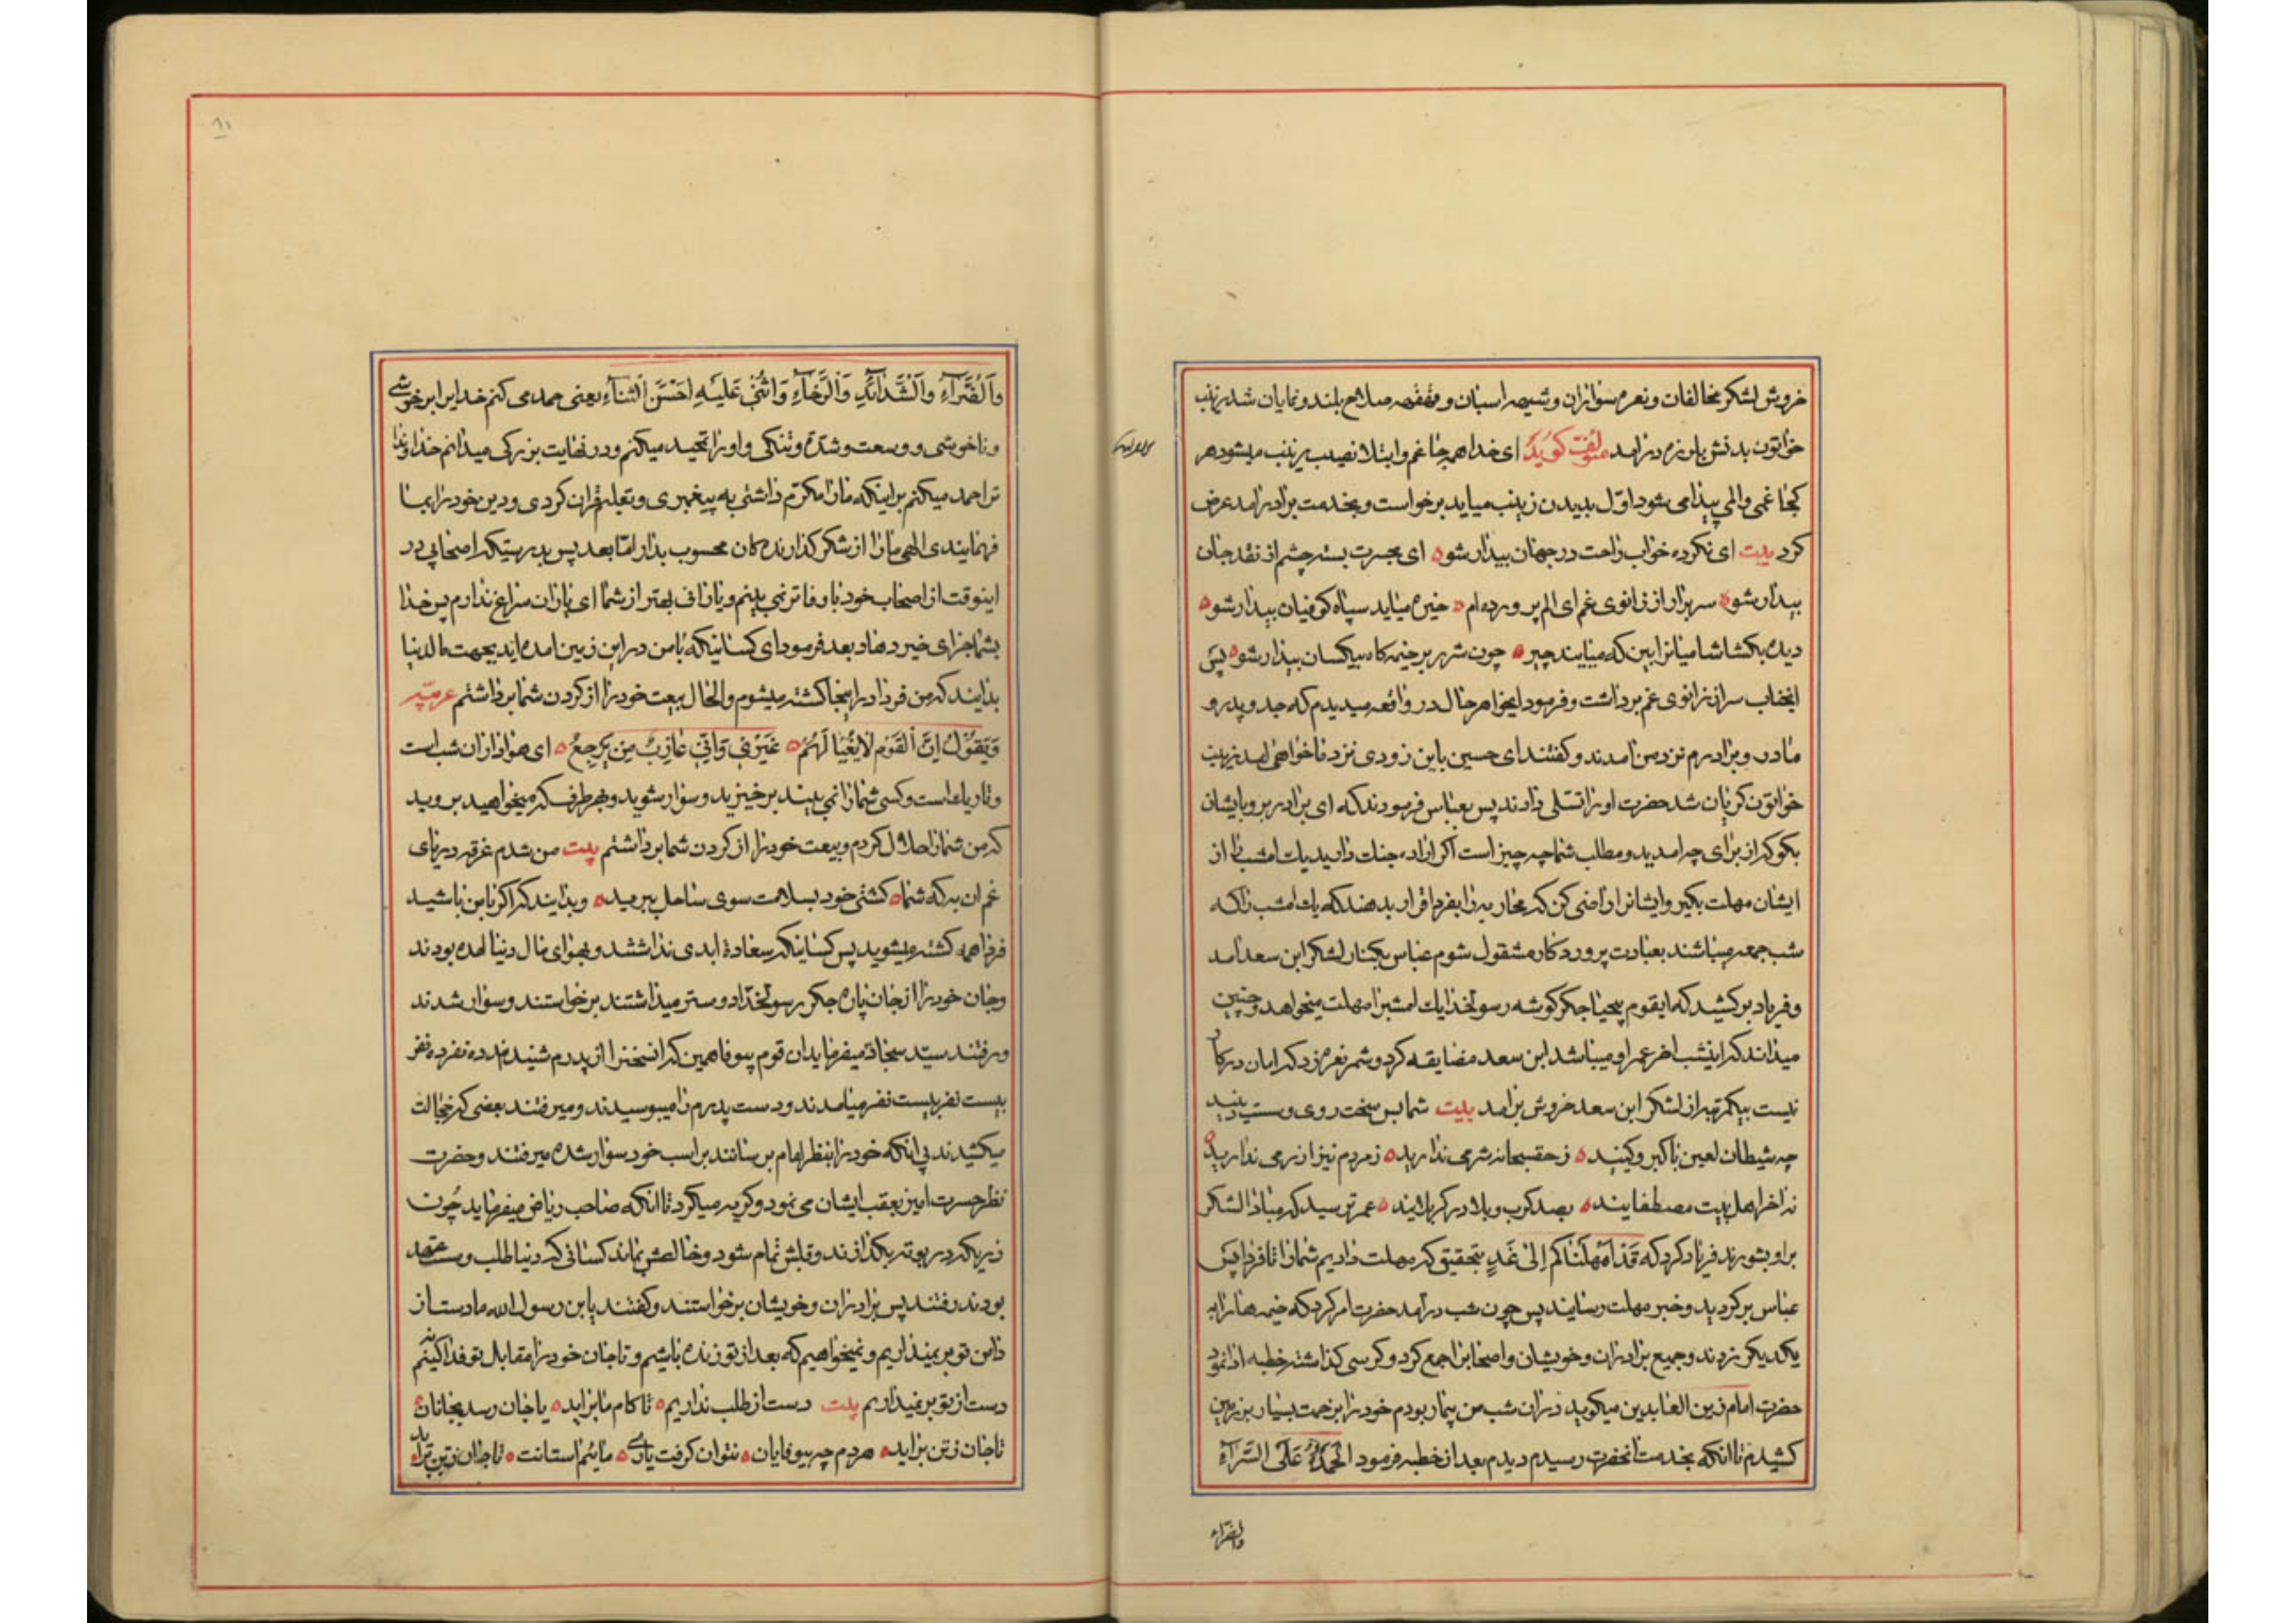 خروش لشکر مخالفان و نعره سواران و شیهه اسبان و قهقهه سلاح بلند و نمایان شد زینب
خواتون بدنش بلرزه درامد مولف کوید ای خدا هر جا غم و ابتلا نصیب زینب میشود هر
کجا غمی و المی پیدا می شود اول بدیدن زینب میاید برخواست و بخدمت برادر امد عرض
کرد بیت ای نکرده خواب راحت در جهان بیدار شو ای بحسرت بسته چشم از نقد جان
بیدار شو سر برار از زانوی غم ای الم پرورده ام خیره میاید سپاه کوفیان بیدار شو
دیده بکشا شامیانرا بین که میایند چیر چون شرر بر خیمه کاه بیکسان بیدار شو پس
انجناب سر از زانوی غم برداشت و فرمود ایخواهر حال در واقعه میدیدم که جد و پدر و
مادر و برادرم نزد من آمدند و کفتند ای حسین باین زودی نزد ما خواهی امد زینب
خواتون کریان شد حضرت او را تسلی دادند پس بعباس فرمودند که ای برادر برو بایشان
بکو که از برای چه امدید و مطلب شما چه چیز است اکر اراده جنک دارید یک امشب را از
ایشان مهلت بکیر و ایشانرا راضی کن که محاربه را بفردا قرار بدهند که یک امشب را که
شب جمعه میباشند بعبادت پروردکار مشقول شوم عباس بکنار لشکر ابن سعد آمد
و فریاد برکشید که ایقوم بیحیا جکرکوشه رسولخدا یک امشبرا مهلت میخواهد و چنین
میداند که اینشب اخر عمر او میباشد ابن سعد مضایقه کرد و شمر نعره زد که امان در کار
نیست بیکمرتبه از لشکر ابن سعد خروش برامد بیت شما بس سخت روی و سست دینید
چه شیطان لعین با کبر و کینید ز حق سبحانه شرمی ندارید ز مردم نیز ازرمی ندارید
نه اخر اهل بیت مصطفایند بصد کرب و بلا در کربلایند عمر ترسید که مبادا لشکر
بر او بشورند فریاد کرد که قد امهلناکم الی غد بتحقیق که مهلت دادیم شما را تا فردا پس
عباس برکردید و خبر مهلت رسانید پس چون شب درآمد حضرت امر کرد که خیمه ها را به
یکدیکر زدند و جمیع برادران و خویشان و اصحابرا جمع کرد و کرسی کذاشته خطبه ادا نمود
حضرت امام زین العابدین میکوید دران شب من بیمار بودم خود را بزحمت بسیار بر زمین
کشیدم تا انکه بخدمت انحضرت رسیدم دیدم بعد از خطبه فرمود الحمد لله علی السراء
والضراء
والضراء والشدائد والرخاء واثنی علیه احسن الثناء یعنی حمد می کنم خدایرا بر خوشی
و ناخوشی و وسعت و شدة و تنکی و او را تمجید میکنم و در نهایت بزرکی میدانم خداوندا
ترا حمد میکنم بر اینکه ما را مکرم داشتی به پیغمبری و تعلیم قران کردی و دین خود را بما
فهمانیدی الهی ما را از شکر کذارنده کان محسوب بدار اما بعد پس بدرستیکه اصحابی در
اینوقت از اصحاب خود باوفاتر نمی بینم و یارانی بهتر از شما ای یاران سراغ ندارم پس خدا
بشما جزای خیر دهاد بعد فرمود ای کسانیکه با من در این زمین امده اید بجهت مال دنیا
بدانید که من فردا در اینجا کشته میشوم والحال بیعت خود را از کردن شما برداشتم عربیه
و یقول ان القوم لا بغیا لهم غیری وانی عازب من یرجع ای هواداران شب است
و تاریک است و کسی شما را نمی بیند برخیزید و سوار شوید و بهر طرف که میخواهید بروید
که من شما را حلال کردم و بیعت خود را از کردن شما برداشتم بیت من شدم غرقه دریای
غم ان به که شما کشتی خود بسلامت سوی ساحل ببرید و بدانید که اکر با من باشید
فردا همه کشته میشوید پس کسانیکه سعادة ابدی نداشتند و بهوای مال دنیا امده بودند
و جان خود را از جان پاره جکر رسولخدا دوستر میداشتند برخواستند و سوار شدند
و رفتند سید سجاد میفرماید ان قوم بیوفا همین که انسخنرا از پدرم شنیدند ده نفر ده نفر
بیست نفر بیست نفر میامدند و دست پدرم را میبوسیدند و میرفتند بعضی که خجالت
میکشیدند بی انکه خود را بنظر امام برسانند بر اسب خود سوار شده میرفتند و حضرت
نظر حسرت امیز بعقب ایشان می نمود و کریه میکرد تا انکه صاحب ریاض میفرماید چون
زریکه در بوته بکدازند و قلبش تمام شود و خالصش نماند کسانی که دنیا طلب و سست عهد
بودند رفتند پس برادران و خویشان برخواستند و کفتند یابن رسول الله ما دست از
دامن تو برنمیداریم و نمیخواهیم که بعد از تو زنده باشیم و تا جان خود را مقابل تو فدا نکنیم
دست از تو برنمیداریم بیت دست از طلب نداریم تا کام ما براید یا جان رسد بجانان
تا جان ز تن براید مردم چه بیوفایان نتوان کرفت یاری مائیم استانت تا جان ز تن براید